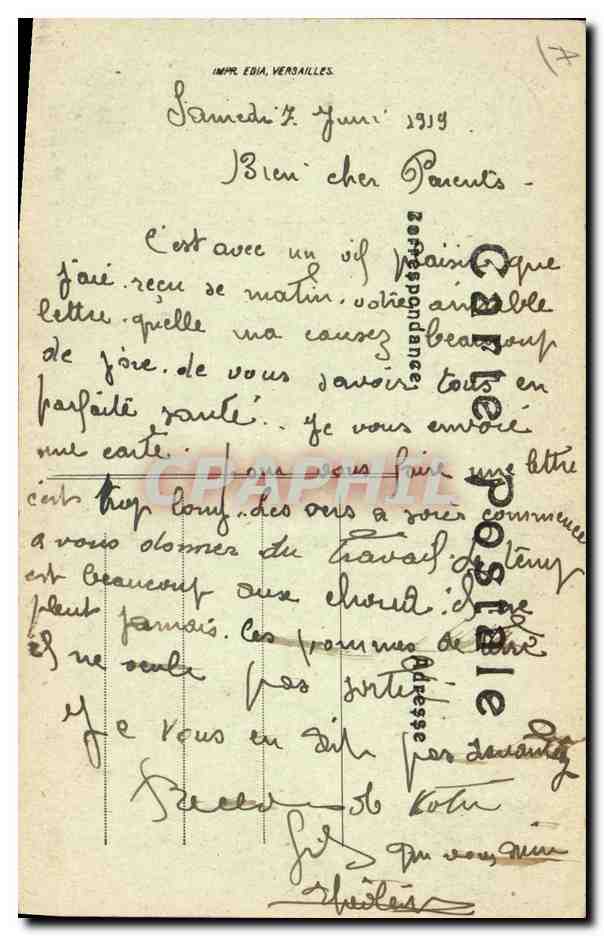 IMPR. EDIA, VERSAILLES.
Samedi 7 Juin 1919
Bien cher Parents -
C'est avec un vif plaisir que
j'aie reçu se matin votre aimable
lettre. qu'elle ma causez beaucoup
de joie de vous savoir tous en
parfaite santé. Je vous envoie
une carte. pour vous faire une lettre
c'est trop long. Les vers a soies commence
a vous donner du travail. Le temp
est beaucoup aux chaud. il ne
pleut jamais. les pommes de terre
il ne veule pas sortir
Je vous en dit pas davantage
de Votre
fils qui vous aime
Carte Postale
Correspondance
Adresse
CPAPHIL